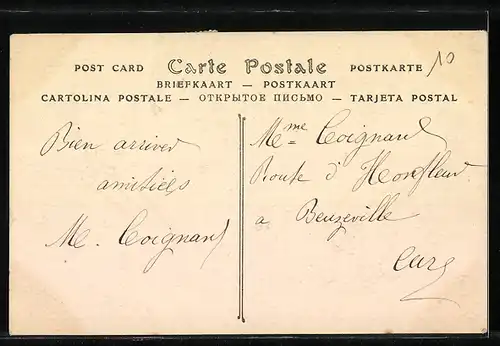 POST CARD Carte Postale POSTKARTE
BRIEFKAART — POSTKAART
CARTOLINA POSTALE — ОТКРЫТОЕ ПИСЬМО — TARJETA POSTAL
10
Bien arriver
amitiées
M. Coignard
Mme Coignard
Route d'Honfleur
a Beuzeville
Eure